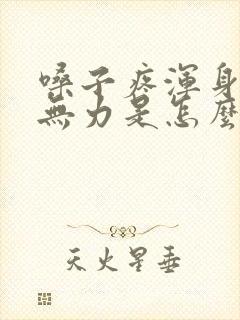 嗓子疼渾身
無力是怎麼
天火星垂